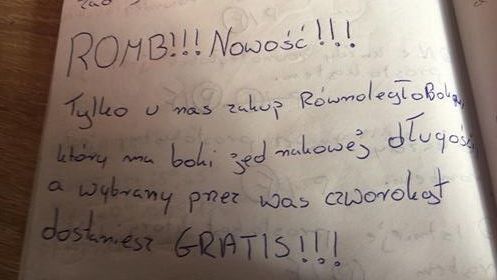 ROMB!!! Nowość!!!
Tylko u nas zakup RównoległoBok
który ma boki jednakowej długości
a wybrany przez was czworokąt
dostaniesz GRATIS!!!